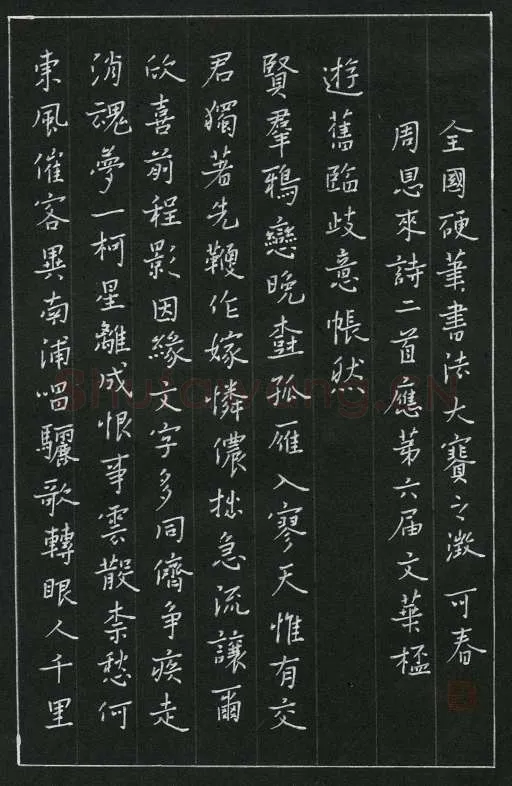 東風催客異南浦唱驪歌轉眼人千里
消魂夢一柯星離成恨事雲散柰愁何
欣喜前程影因緣文字多同儕争疾走
君獨著先鞭作嫁憐儂拙急流讓爾
賢羣鴉戀晚樹孤雁入寥天惟有交
遊舊臨歧意帳然
周恩來詩二首應第六届文華
全國硬筆書法大賽之徵 可春
Shufawang.CN